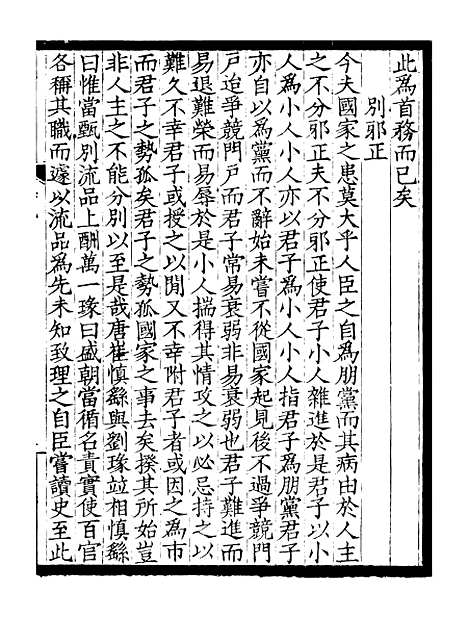 此爲首務而已矣
別邪正
今夫國家之患莫大乎人臣之自爲朋黨而其病由於人主
之不分邪正夫不分邪正使君子小人雜進於是君子以小
人爲小人小人亦以君子爲小人小人指君子爲朋黨君子
亦自以爲黨而不辭始未嘗不從國家起見後不過爭競門
戸迨爭競門戸而君子常易衰弱非易衰弱也君子難進而
易退難榮而易辱於是小人揣得其情攻之以必忌持之以
難久不幸君子或授之以閒又不幸附君子者或因之爲市
而君子之勢孤矣君子之勢孤國家之事去矣揆其所始豈
非人主之不能分別以至是哉唐崔慎繇與劉瑑竝相慎繇
曰惟當甄別流品上酬萬一瑑曰盛朝當循名責實使百官
各稱其職而遽以流品爲先未知致理之自臣嘗讀史至此